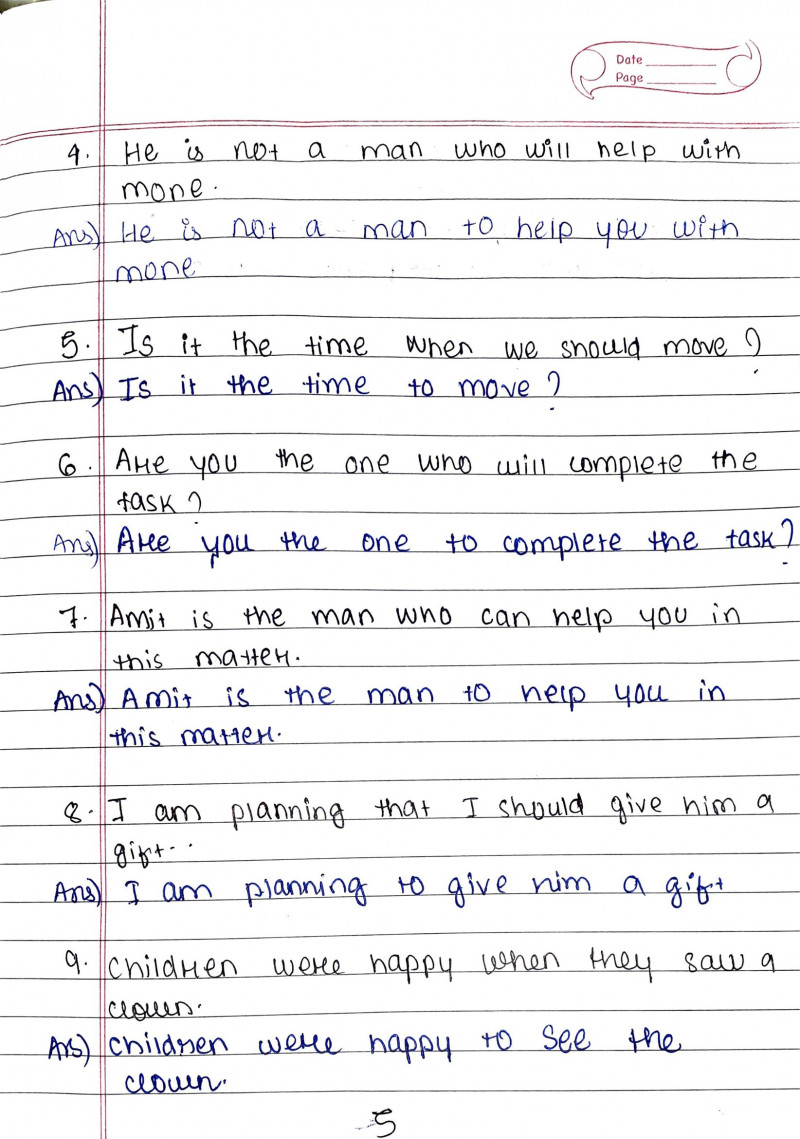 Date
Page
4. He is not a man who will help with
mone.
Ans) He is not a man to help you with
mone
5. Is it the time when we should move?
Ans) Is it the time to move?
6. Are you the one who will complete the
task?
Ans) Are you the one to complete the task?
7. Amit is the man who can help you in
this matter.
Ans) Amit is the man to help you in
this matter.
8. I am planning that I should give him a
gift..
Ans) I am planning to give him a gift
9. Children were happy when they saw a
clown.
Ans) Children were happy to see the
clown.
5